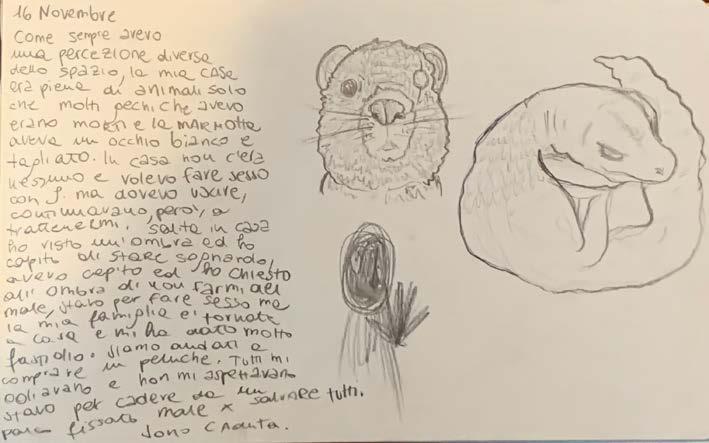 16 Novembre
Come sempre avevo
una percezione diversa
dello spazio, la mia casa
era piena di animali solo
che molti pochi che avevo
erano morti e la MARMOTTA
aveva un occhio bianco e
tagliato. In casa non c'era
nessuno e volevo fare sesso
con J. ma dovevo uscire,
continuavano, però, a
trattenermi. Salita in casa
ho visto un'ombra ed ho
capito di stare sognando,
avevo capito ed ho chiesto
all'ombra di non farmi del
male, stavo per fare sesso ma
la mia famiglia e' tornata
a casa e mi ha dato molto
fastidio. Siamo andati a
comprare un peluche. Tutti mi
odiavano e non mi aspettavano
stavo per cadere da un
palo fissato male x salvare tutti.
Sono caduta.